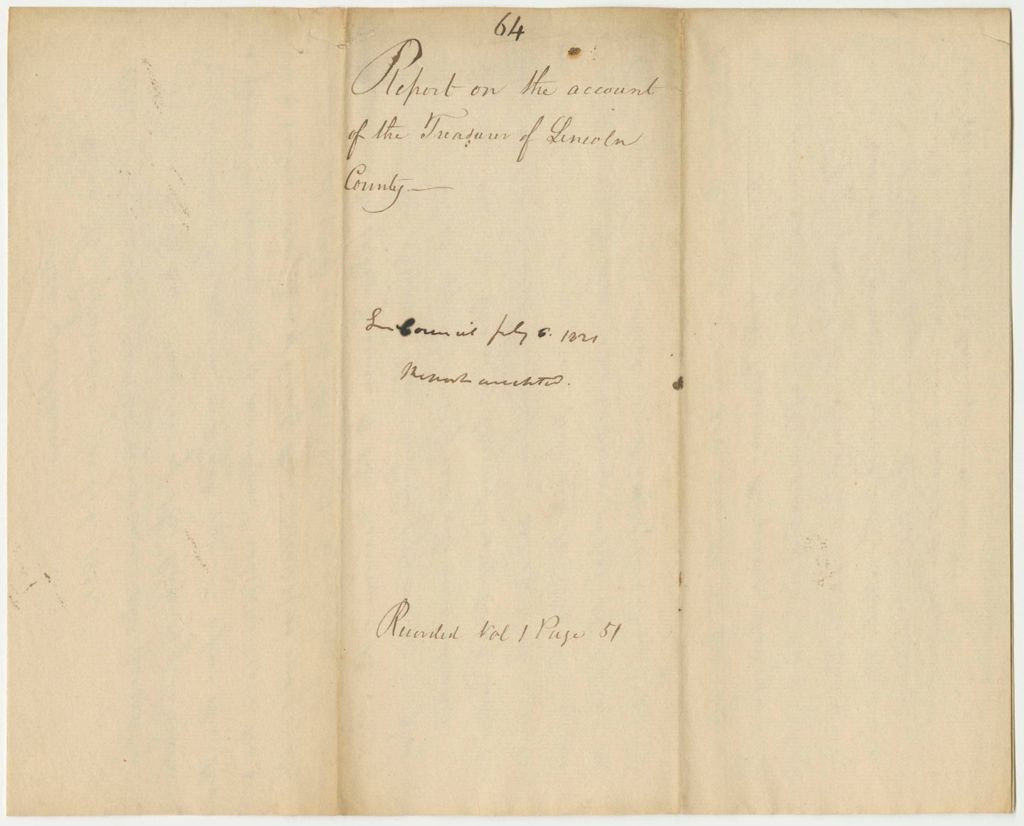 64
Report on the account
of the Treasurer of Lincoln
County
In Council July 6. 1821
Report accepted.
Recorded Vol 1 Page 51